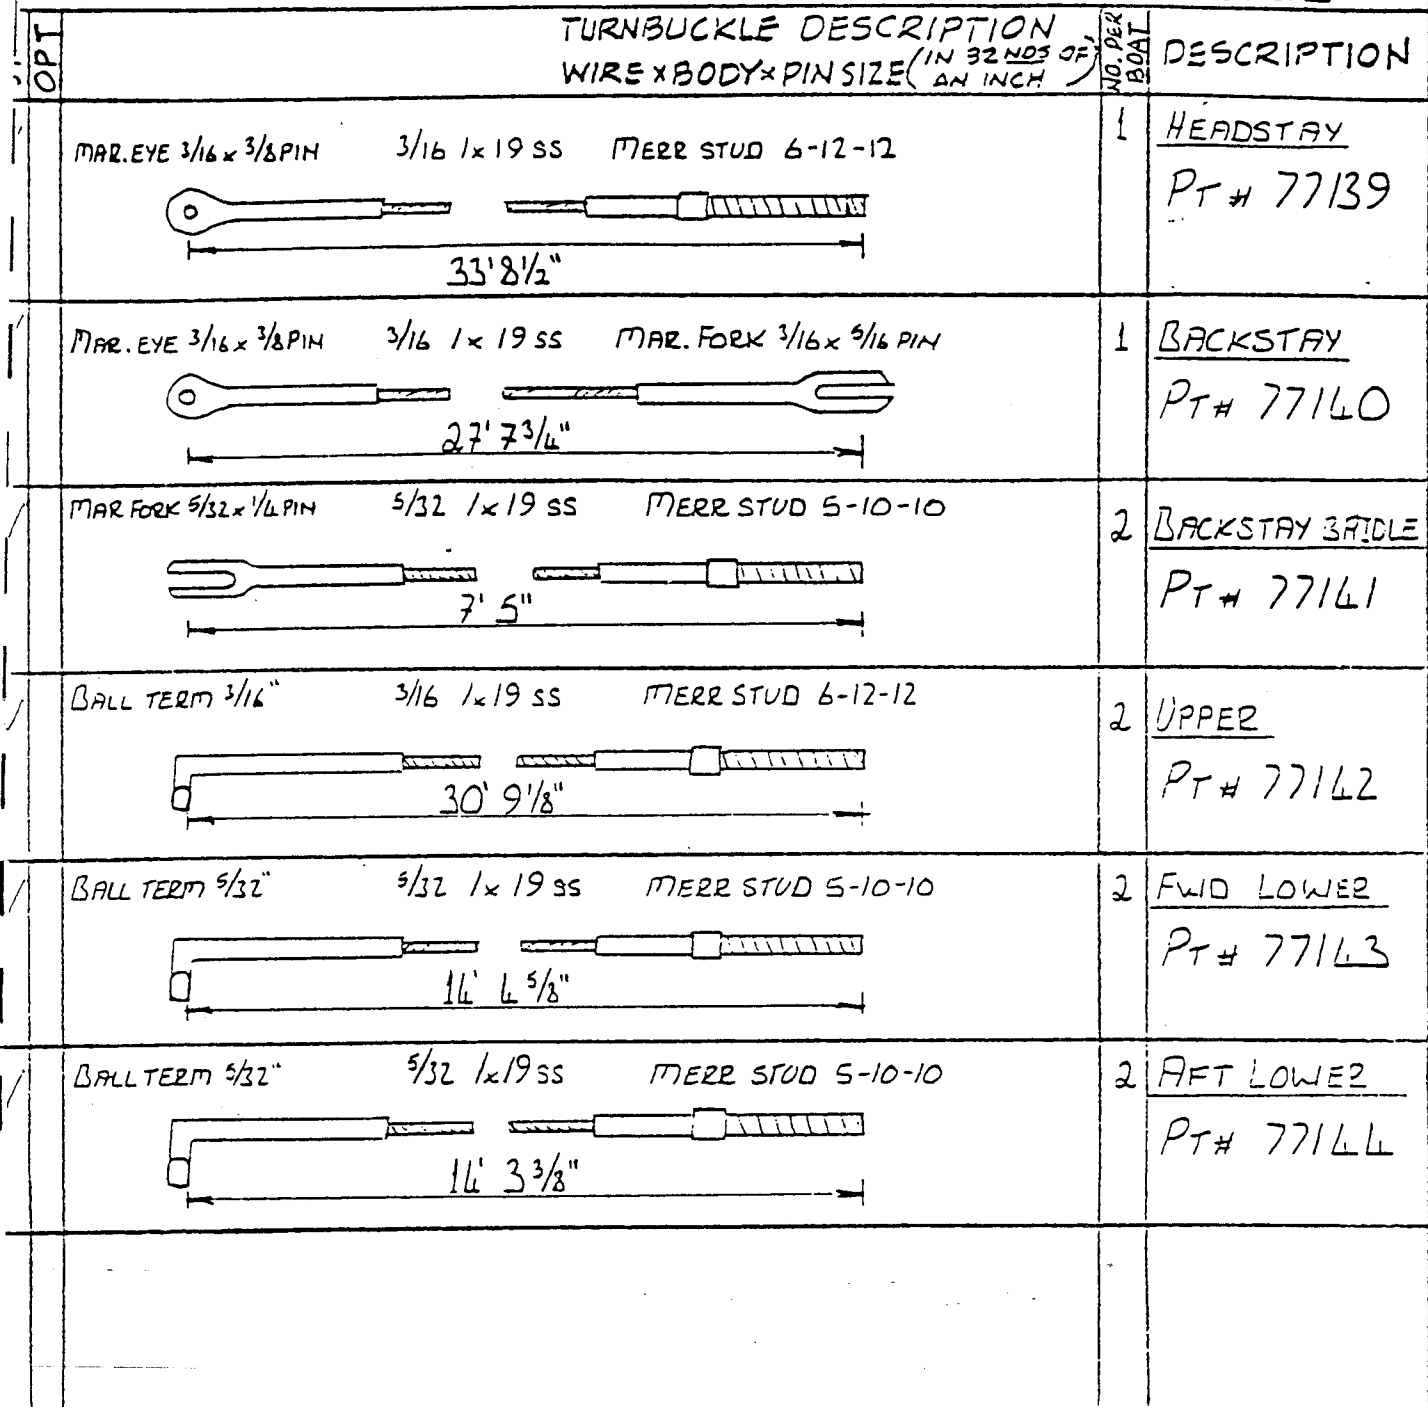 OPT
TURNBUCKLE DESCRIPTION
WIRE x BODY x PIN SIZE (IN 32 NDS OF AN INCH)
NO. PER BOAT
DESCRIPTION
MAR. EYE 3/16 x 3/8 PIN 3/16 1x19 SS MERR STUD 6-12-12
33' 8 1/2"
1 HEADSTAY
PT # 77139
MAR. EYE 3/16 x 3/8 PIN 3/16 1x19 SS MAR. FORK 3/16 x 5/16 PIN
27' 7 3/4"
1 BACKSTAY
PT # 77140
MAR FORK 5/32 x 1/4 PIN 5/32 1x19 SS MERR STUD 5-10-10
7' 5"
2 BACKSTAY BRIDLE
PT # 77141
BALL TERM 3/16" 3/16 1x19 SS MERR STUD 6-12-12
30' 9 1/8"
2 UPPER
PT # 77142
BALL TERM 5/32" 5/32 1x19 SS MERR STUD 5-10-10
14' 4 5/8"
2 FWD LOWER
PT # 77143
BALL TERM 5/32" 5/32 1x19 SS MERR STUD 5-10-10
14' 3 3/8"
2 AFT LOWER
PT # 77144